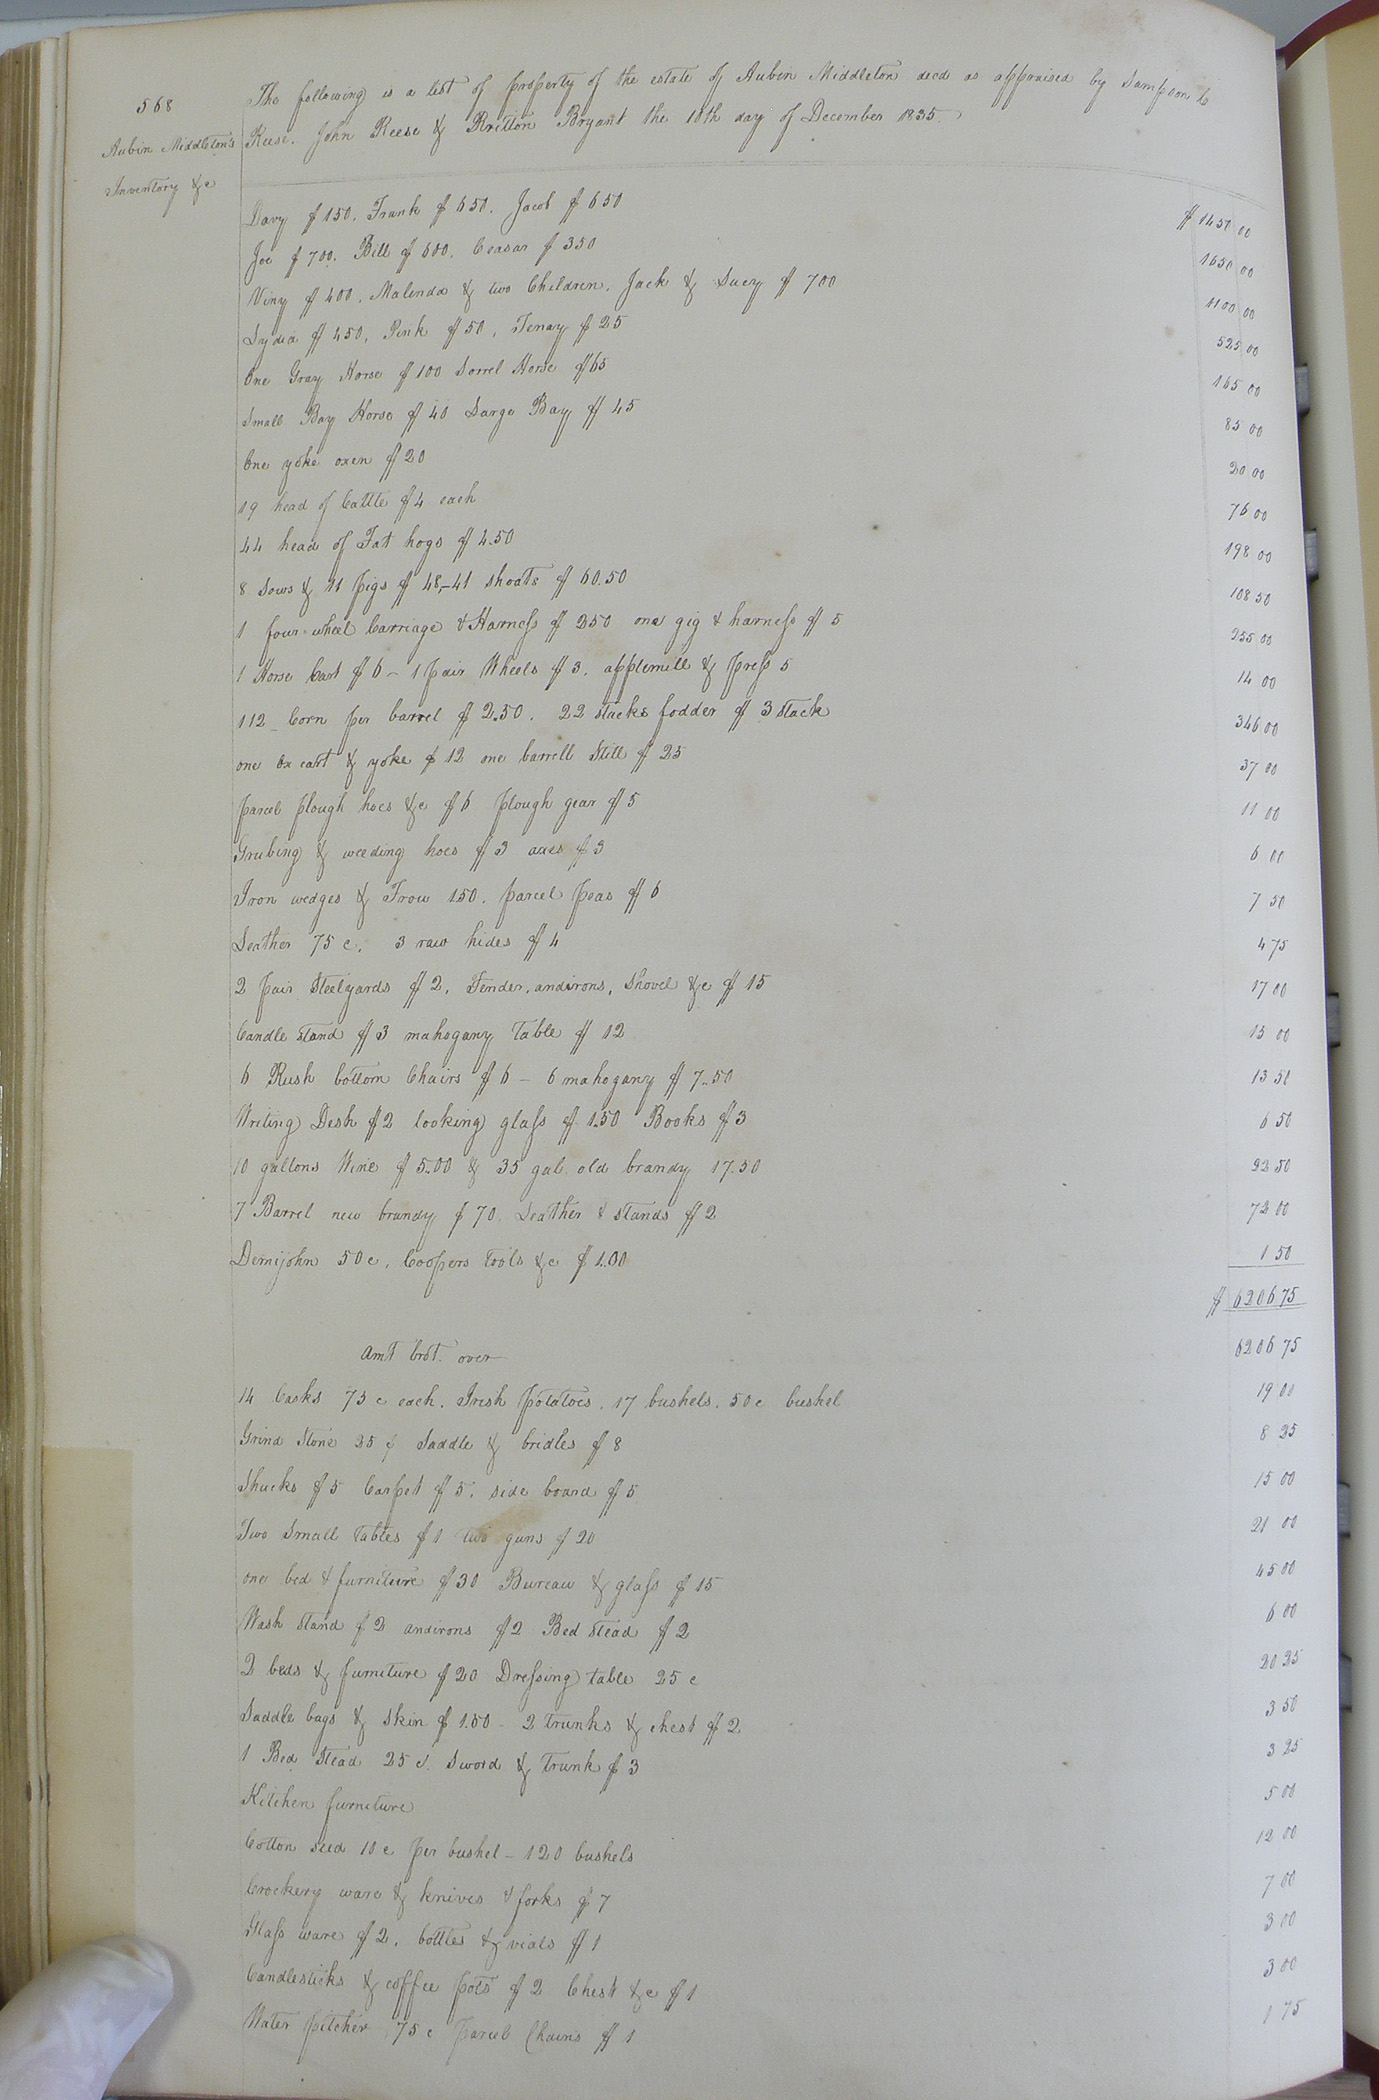 568
Aubin Middleton's
Inventory &c
The following is a list of property of the estate of Aubin Middleton decd as appraised by Sampson C
Reese. John Reese & Britton Bryant the 18th day of December 1835.
Davy $150. Frank $650. Jacob $650 $1450 00
Joe $700. Bill $600. Ceasar $350 1650 00
Viny $400. Malinda & two Children. Jack & Sucy $700 1100 00
Lydia $450. Pink $50. Tenay $25 525 00
One Gray Horse $100 Sorrel Horse $65 165 00
Small Bay Horse $40 Large Bay $45 85 00
One yoke oxen $20 20 00
19 head of Cattle $4 each 76 00
44 head of Fat hogs $4.50 198 00
8 Sows & 11 pigs $48,-41 shoats $60.50 108 50
1 four-wheel Carriage & Harness $250 one gig & harness $5 255 00
1 Horse Cart $6 - 1 pair Wheels $3. applemill & press 5 14 00
112 Corn per barrel $2.50. 22 stacks fodder $3 stack 346 00
one Ox cart & yoke $12 one barrell Still $25 37 00
parcel plough hoes &c $6 plough gear $5 11 00
Grubing & weeding hoes $3 axes $3 6 00
Iron wedges & Frow 1.50. parcel peas $6 7 50
Leather 75 c. 3 raw hides $4 4 75
2 pair Steelyards $2. Fender, andirons, Shovel &c $15 17 00
Candle Stand $3 mahogany Table $12 15 00
6 Rush bottom Chairs $6 - 6 mahogany $7.50 13 50
Writing Desk $2 looking glass $1.50 Books $3 6 50
10 gallons Wine $5.00 & 35 gal. old brandy 17.50 22 50
7 Barrel new brandy $70. Leather & stands $2 72 00
Demijohn 50 c. Coopers Tools &c $1.00 1 50
$6206 75
Amt brot. over 6206 75
14 Casks 75 c each. Irish potatoes. 17 bushels. 50 c bushel 19 00
Grind Stone 25 ¢ Saddle & bridles $8 8 25
Shucks $5 Carpet $5. side board $5 15 00
Two Small Tables $1 two guns $20 21 00
one bed & furniture $30 Bureau & glass $15 45 00
Wash Stand $2 andirons $2 Bed Stead $2 6 00
2 beds & furniture $20 Dressing table 25 c 20 25
Saddle bags & skin $1.50 - 2 trunks & chest $2 3 50
1 Bed Stead 25 c. Sword & trunk $3 3 25
Kitchen furniture 5 00
Cotton seed 10 c per bushel - 120 bushels 12 00
Crockery ware & knives & forks $7 7 00
Glass ware $2. bottles & vials $1 3 00
Candlesticks & coffee pots $2 Chest &c $1 3 00
Water pitcher 75 c parcel Chains $1 1 75